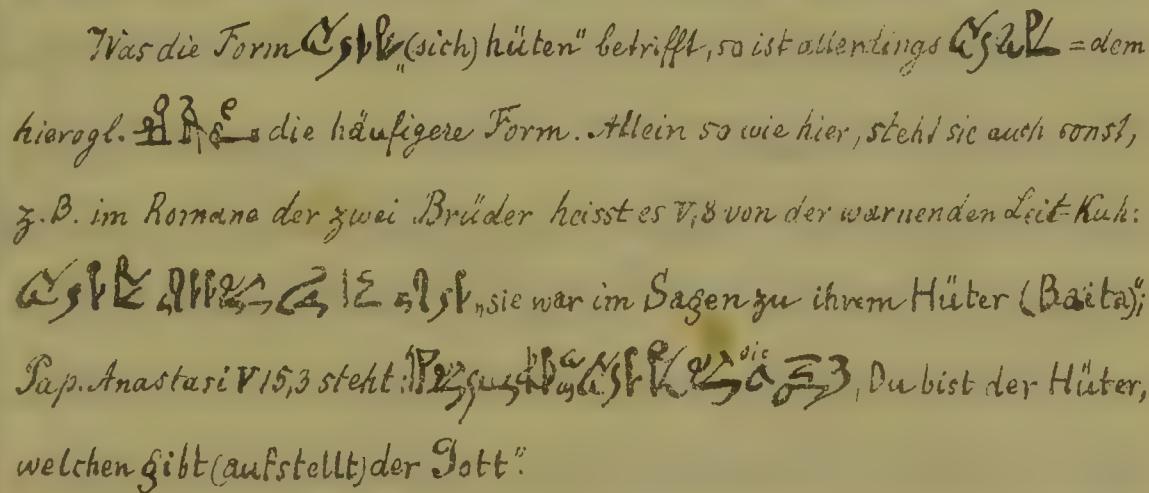 Was die Form „(sich) hüten" betrifft, so ist allerdings = dem
hierogl. die häufigere Form. Allein so wie hier, steht sie auch sonst,
z. B. im Romane der zwei Brüder heisst es V,8 von der warnenden Leit-Kuh:
„sie war im Sagen zu ihrem Hüter (Baïta)";
Pap. Anastasi V 15,3 steht: sic , Du bist der Hüter,
welchen gibt (aufstellt) der Gott".